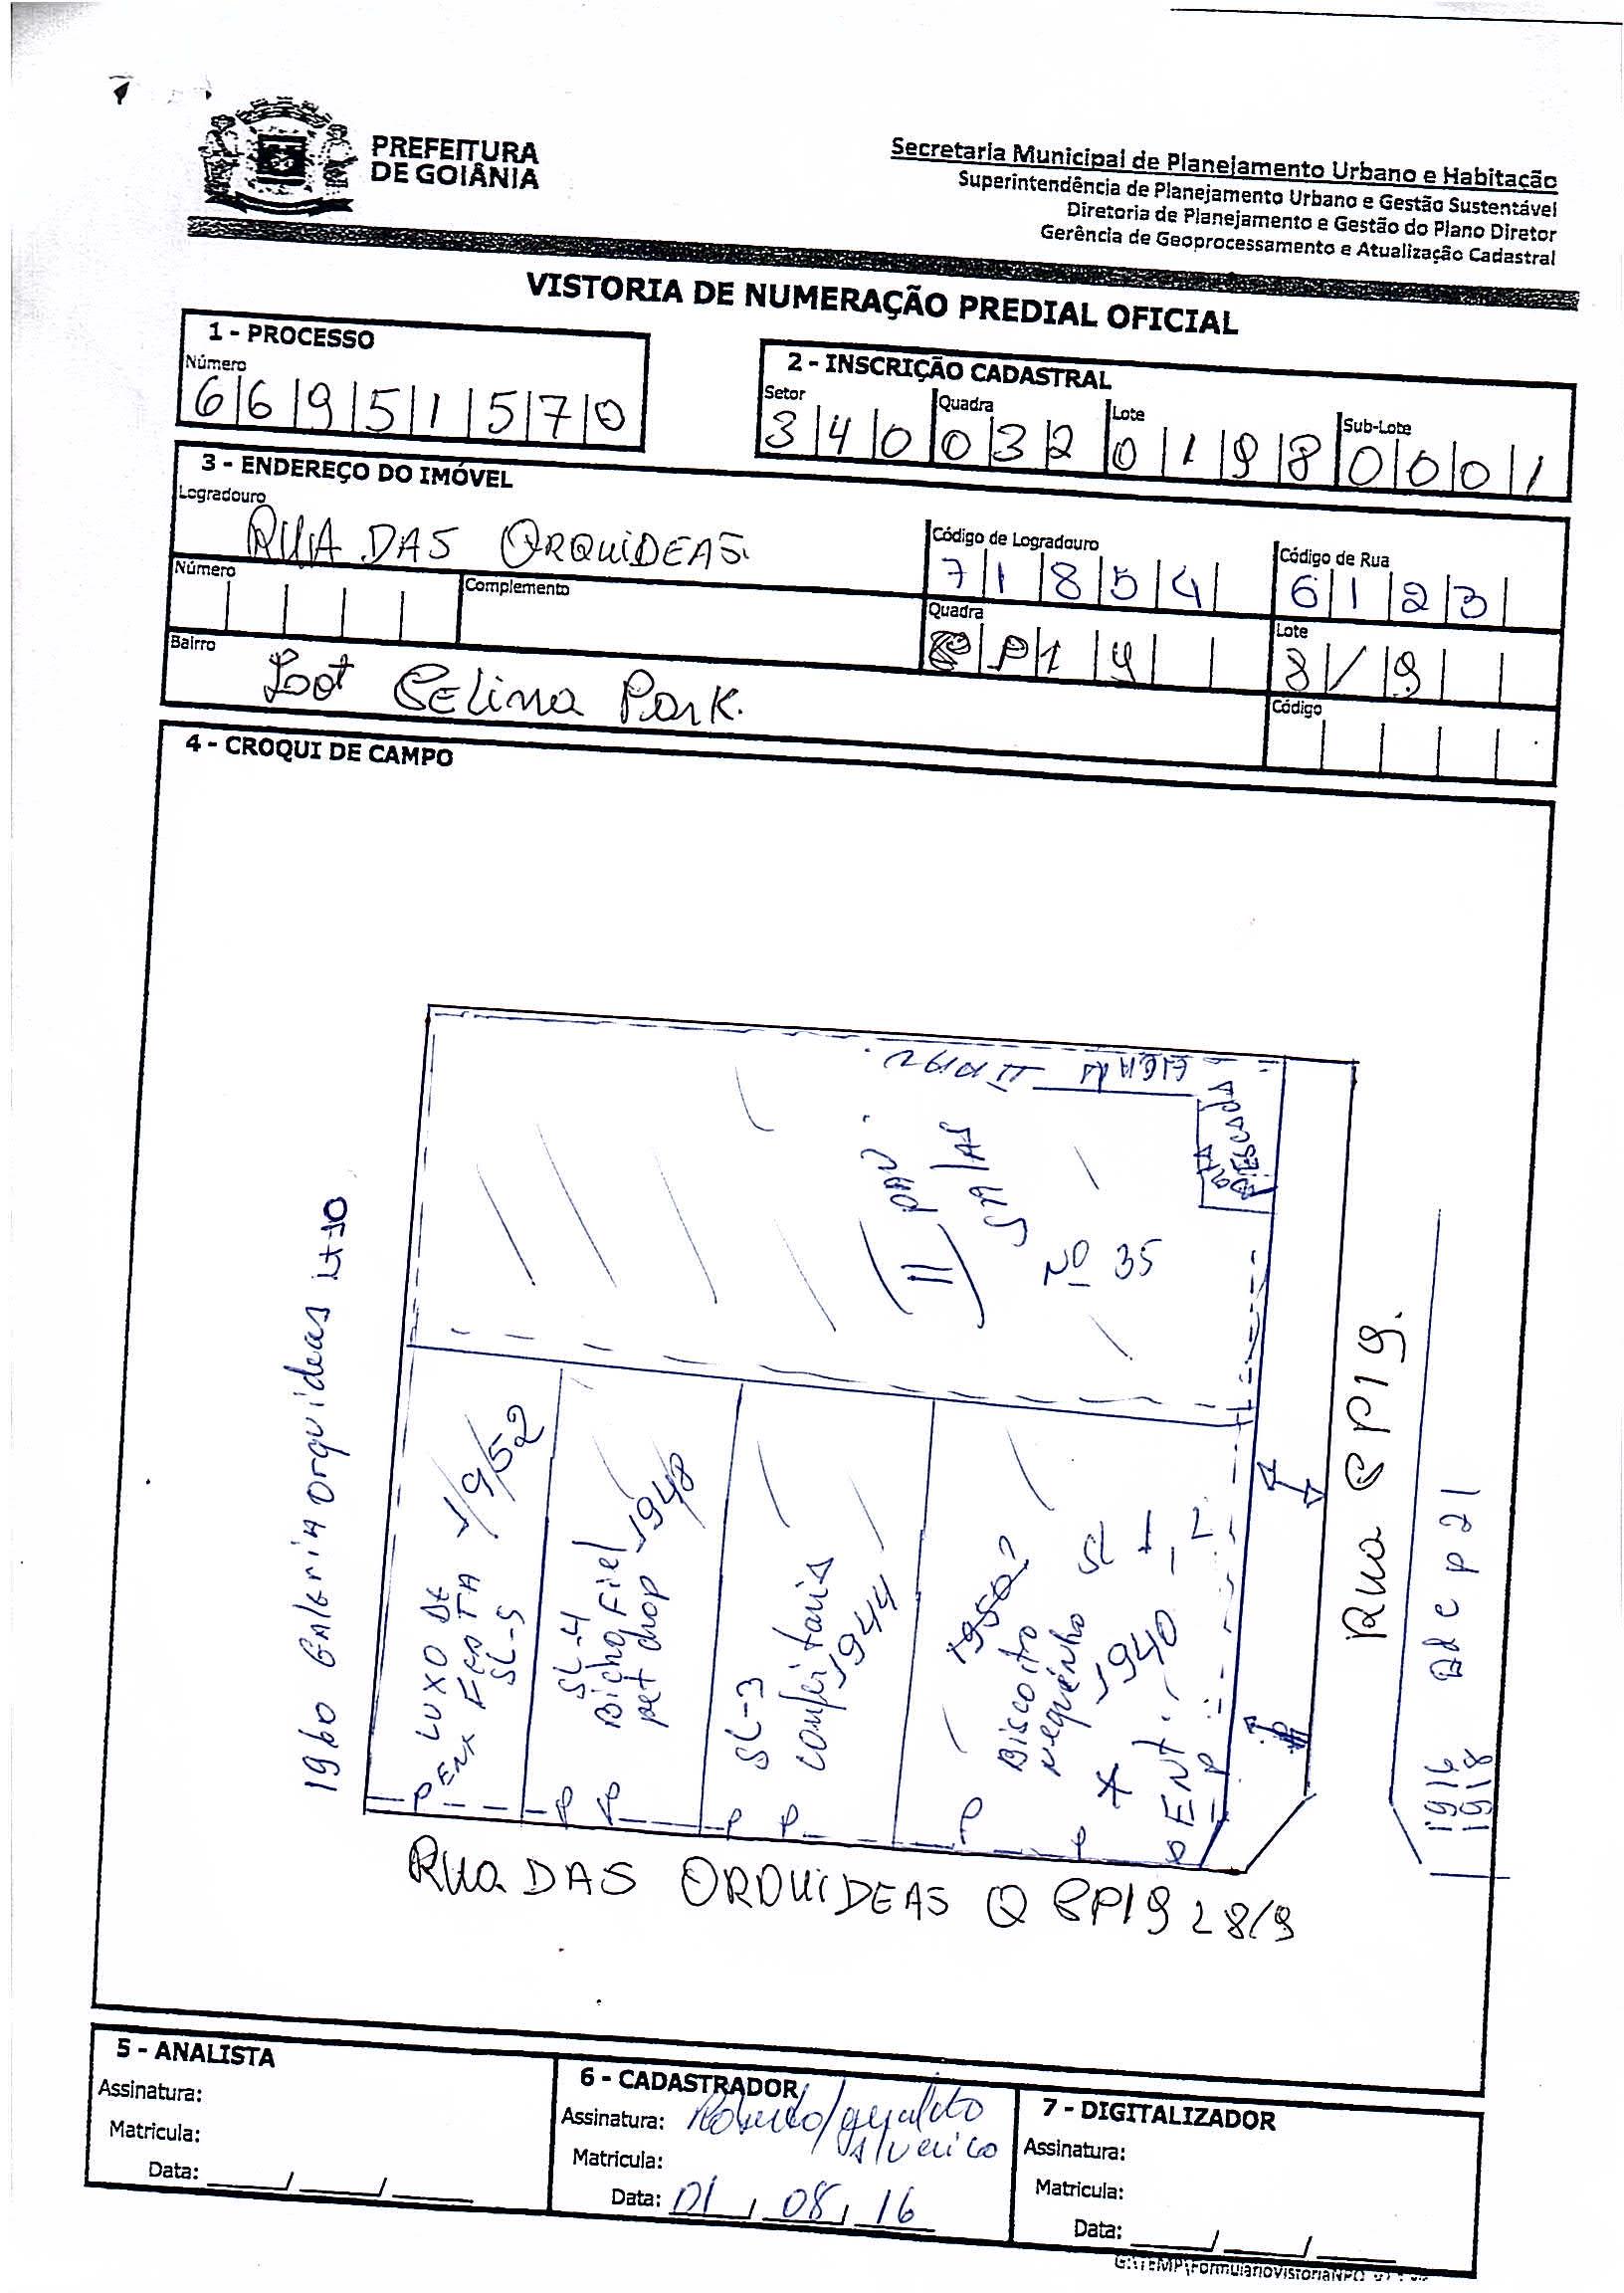 PREFEITURA
DE GOIÂNIA
Secretaria Municipal de Planejamento Urbano e Habitação
Superintendência de Planejamento Urbano e Gestão Sustentável
Diretoria de Planejamento e Gestão do Plano Diretor
Gerência de Geoprocessamento e Atualização Cadastral
VISTORIA DE NUMERAÇÃO PREDIAL OFICIAL
1 - PROCESSO
Número
6 6 9 5 1 5 7 0
2 - INSCRIÇÃO CADASTRAL
Setor Quadra Lote Sub-Lote
3 4 0 0 3 2 0 1 9 8 0 0 0 1
3 - ENDEREÇO DO IMÓVEL
Logradouro
RUA DAS ORQUIDEAS
Código de Logradouro
7 1 8 5 4
Código de Rua
6 1 2 3
Número
Complemento
Quadra
P 1 9
Lote
8 / 9
Bairro
Loot Celina Park.
Código
4 - CROQUI DE CAMPO
II PAV.
SALAS
Nº 35
ESCADA
1960 Galeria orquideas
LUXO DE
FESTA
SL-5
1952
SL-4
Bicho Fiel
pet shop
1948
SL-3
confeitaria
1944
1950
Biscoito
nequinho
SL 1, 2
1940
ENT.
Rua CP19.
Ad c p 21
1916
1918
RUA DAS ORQUIDEAS Q CP19 L 8/9
5 - ANALISTA
Assinatura:
Matricula:
Data: ___/___/___
6 - CADASTRADOR
Assinatura: Roberto/geraldo
Matricula:
Data: 01/08/16
7 - DIGITALIZADOR
Assinatura:
Matricula:
Data: ___/___/___